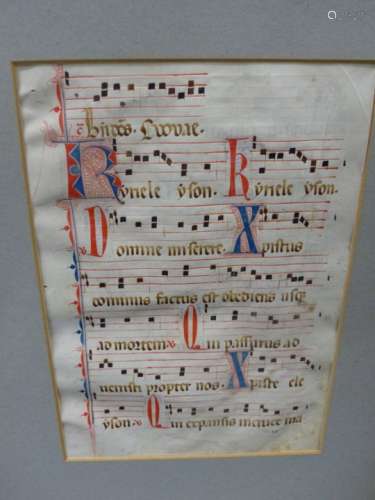 Kyriele yson. Kyriele yson.
Domine miserere. Xpistus
dominus factus est obediens usq;
ad mortem. Qui passurus ad
uenisti propter nos. Xpiste ele
yson. Qui expansis